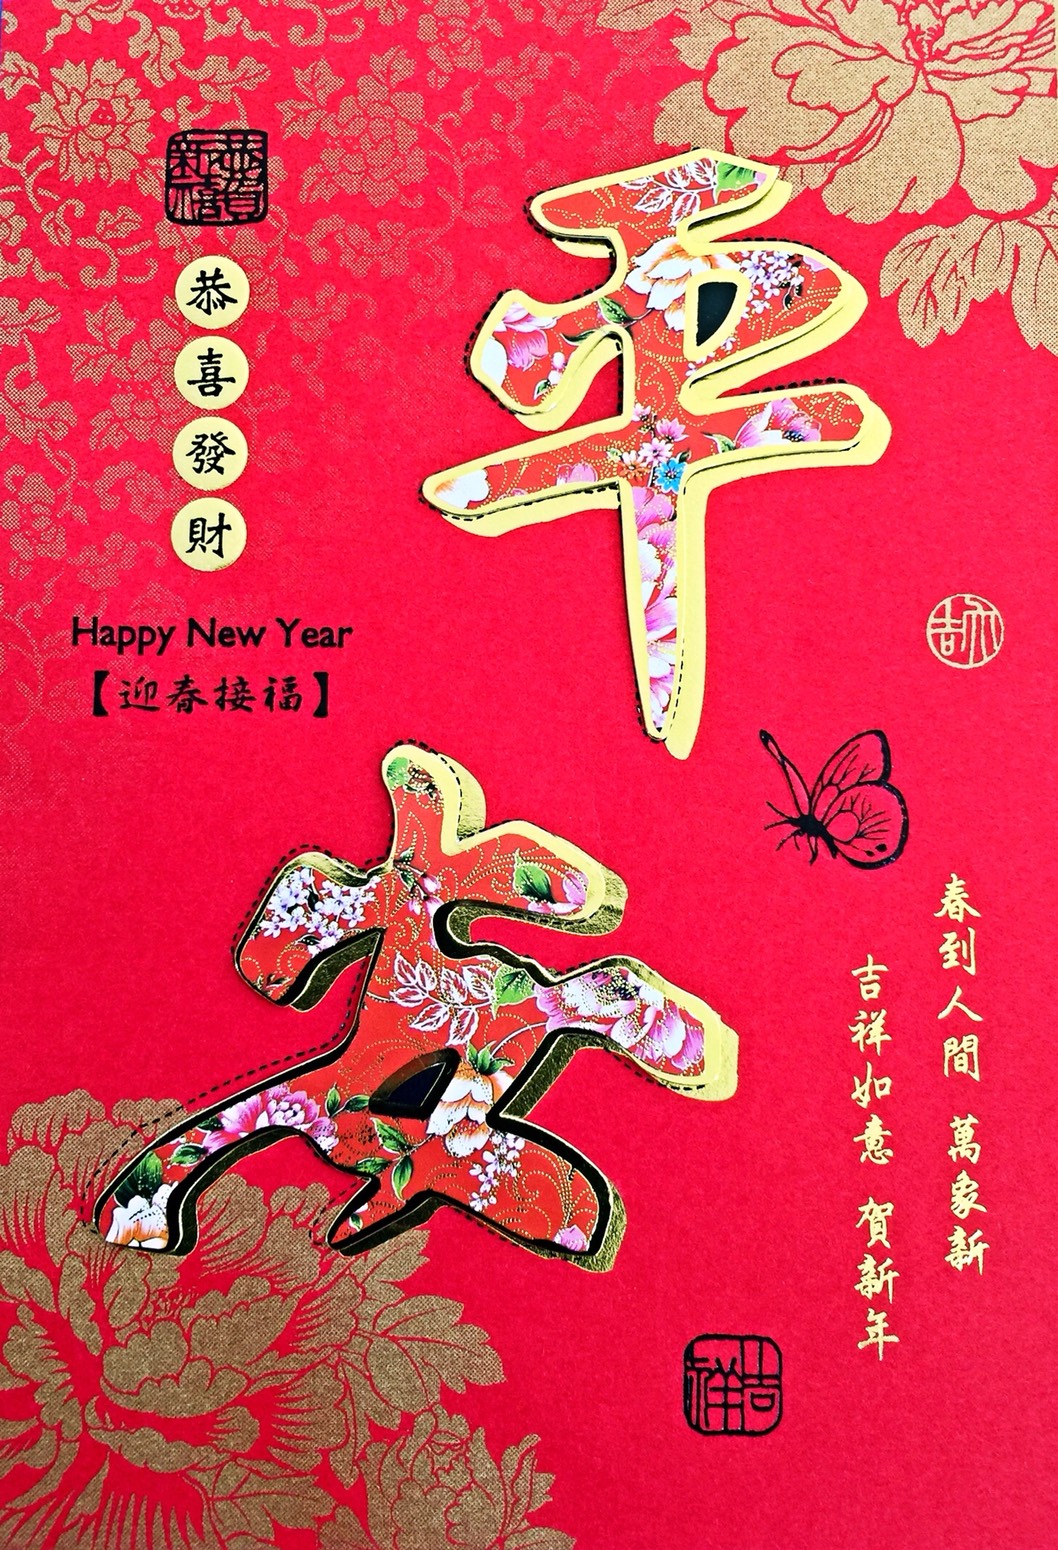 恭賀新禧
恭喜發財
Happy New Year
【迎春接福】
平安
春到人間 萬象新
吉祥如意 賀新年
吉祥